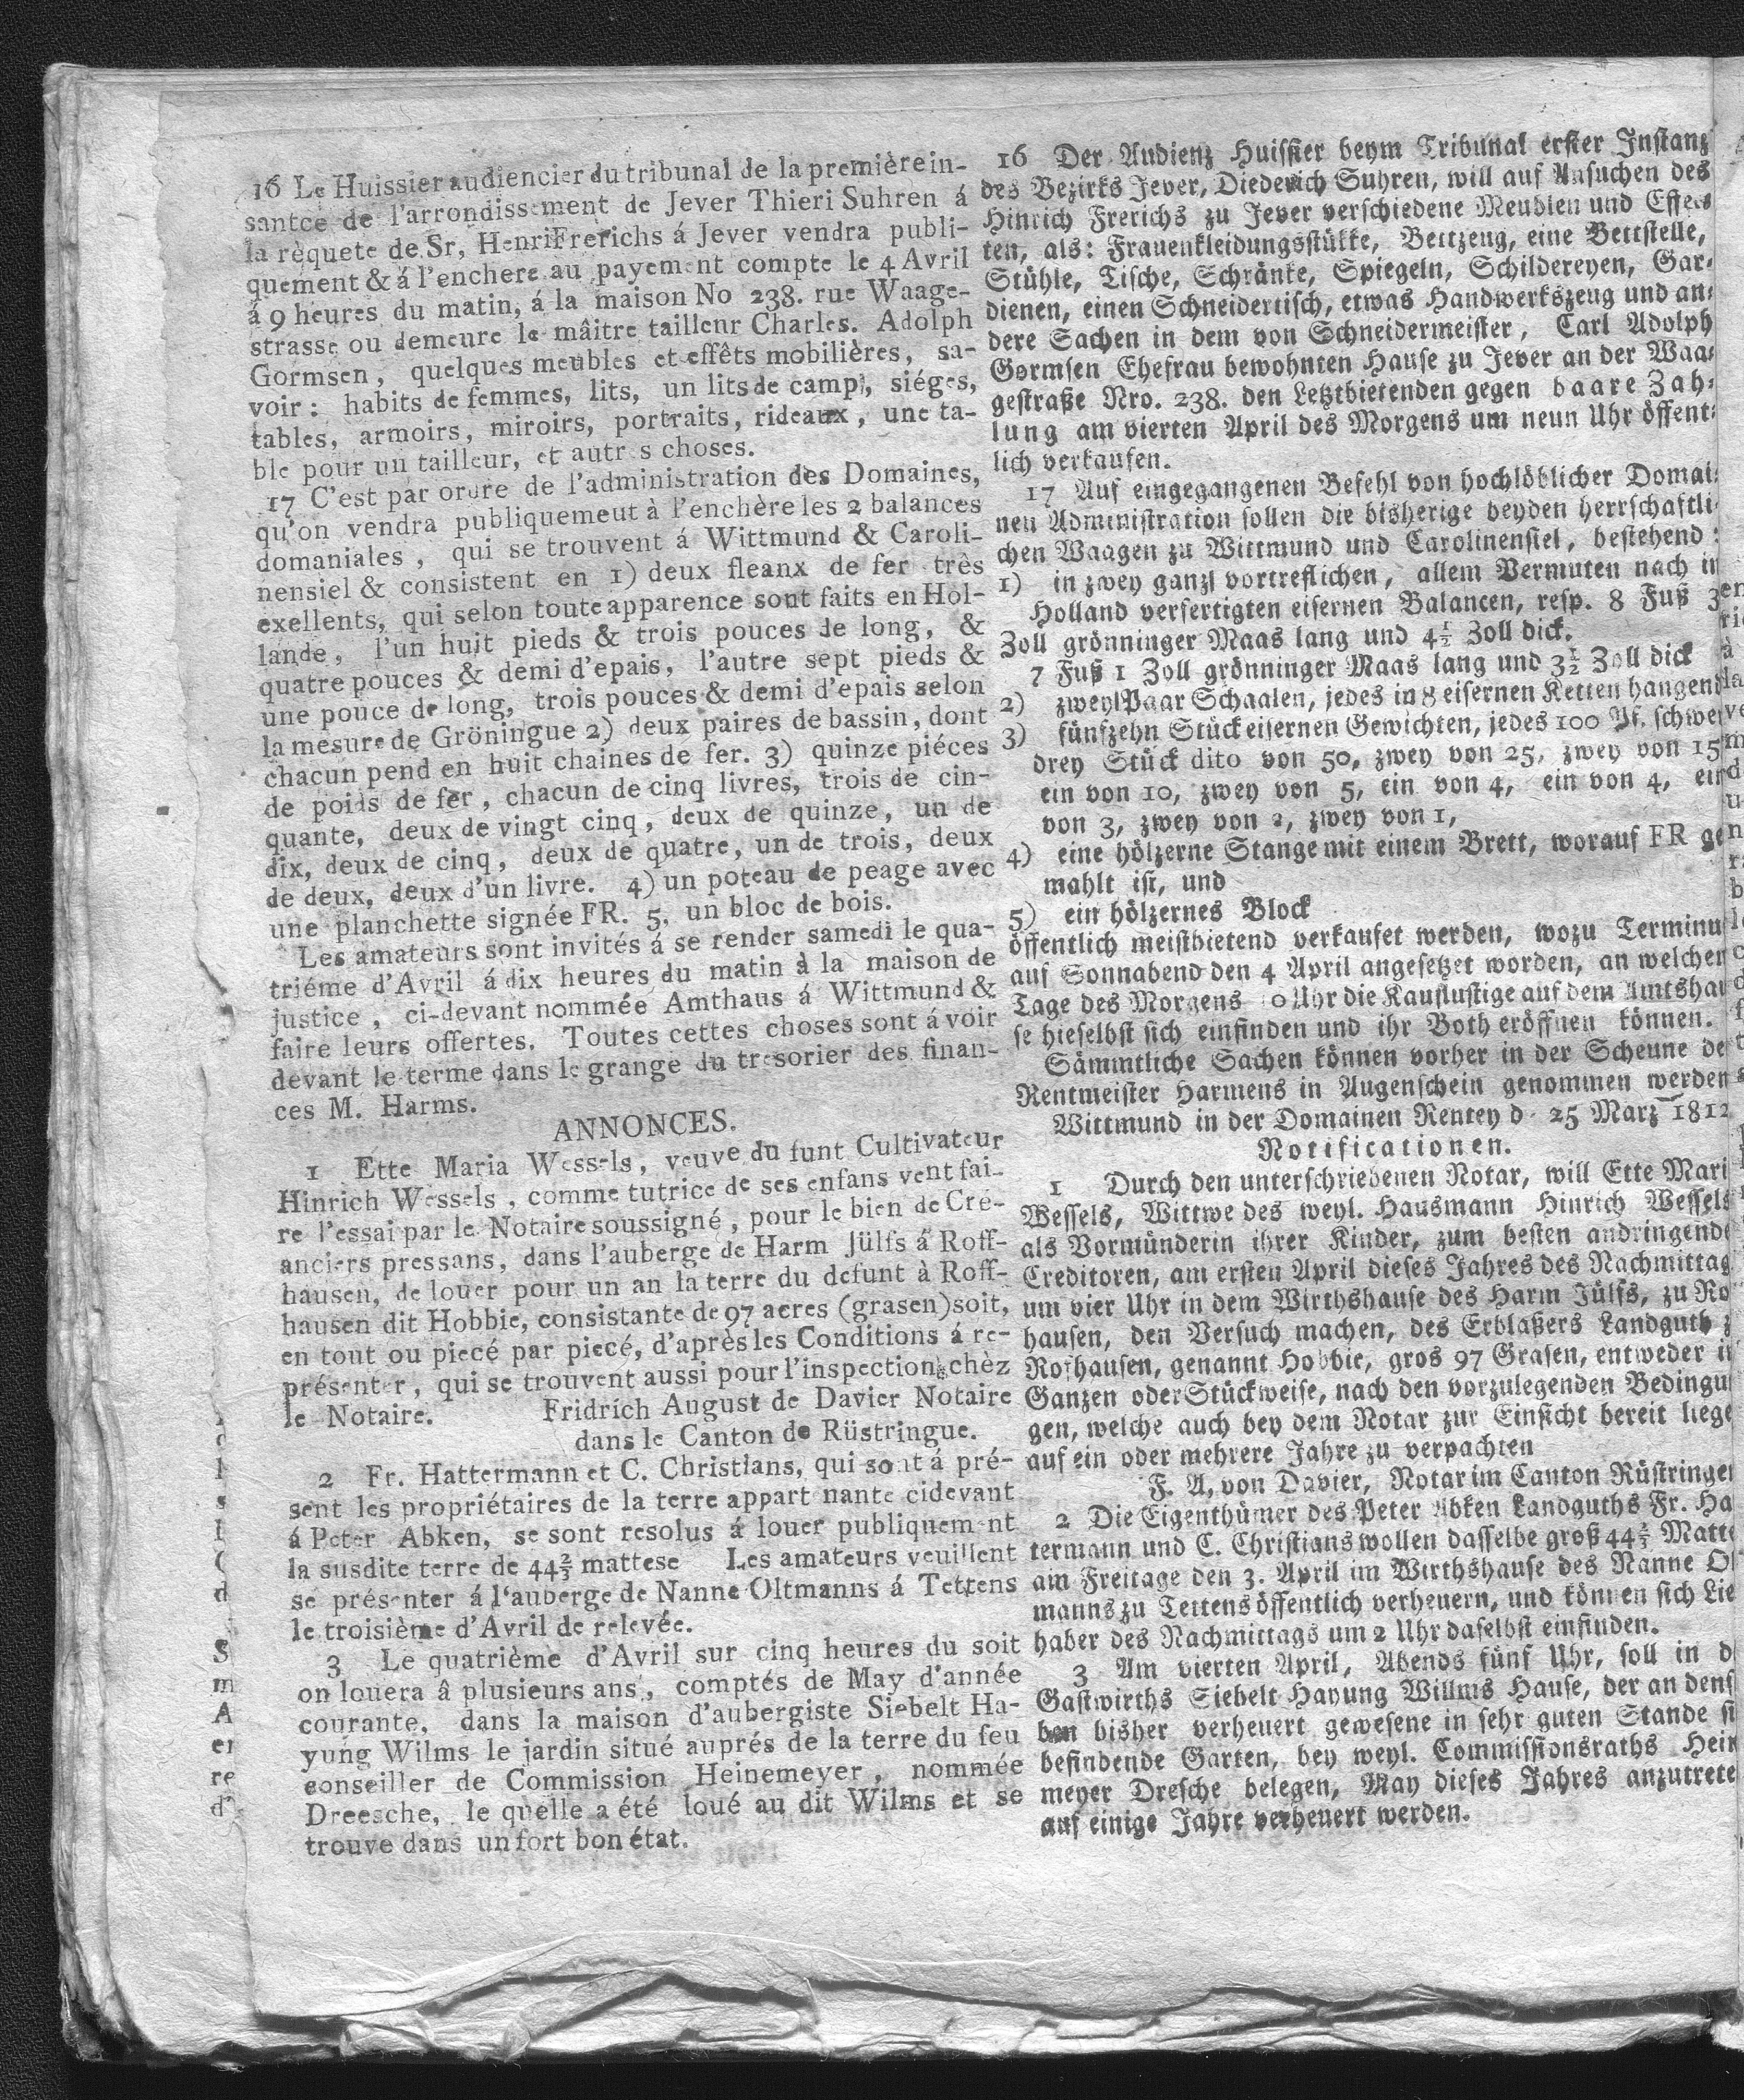 16 Le Huissier audiencier du tribunal de la première in-
santce de l'arrondissement de Jever Thieri Suhren á
la rèquete de Sr, Henri Frerichs á Jever vendra publi-
quement & á l'enchere au payement compte le 4 Avril
á 9 heures du matin, á la maison No 238. rue Waage-
strasse ou demeure le mâitre taillenr Charles. Adolph
Gormsen, quelques meubles et effêts mobilières, sa-
voir: habits de femmes, lits, un lits de camp, siéges,
tables, armoirs, miroirs, portraits, rideaux, une ta-
ble pour un tailleur, et autres choses.
17 C'est par ordre de l'administration des Domaines,
qu'on vendra publiquemeut à l'enchère les 2 balances
domaniales, qui se trouvent á Wittmund & Caroli-
nensiel & consistent en 1) deux fleanx de fer très
exellents, qui selon toute apparence sont faits en Hol-
lande, l'un huit pieds & trois pouces de long, &
quatre pouces & demi d'epais, l'autre sept pieds &
une pouce de long, trois pouces & demi d'epais selon
la mesure de Gröningue 2) deux paires de bassin, dont
chacun pend en huit chaines de fer. 3) quinze piéces
de poids de fer, chacun de cinq livres, trois de cin-
quante, deux de vingt cinq, deux de quinze, un de
dix, deux de cinq, deux de quatre, un de trois, deux
de deux, deux d'un livre. 4) un poteau de peage avec
une planchette signée FR. 5. un bloc de bois.
Les amateurs sont invités á se render samedi le qua-
triéme d'Avril á dix heures du matin à la maison de
justice, ci-devant nommée Amthaus á Wittmund &
faire leurs offertes. Toutes cettes choses sont á voir
devant le terme dans le grange du tresorier des finan-
ces M. Harms.
ANNONCES.
1 Ette Maria Wessels, veuve du funt Cultivateur
Hinrich Wessels, comme tutrice de ses enfans vent fai-
re l'essai par le Notaire soussigné, pour le bien de Cre-
anciers pressans, dans l'auberge de Harm Jülfs á Roff-
hausen, de louer pour un an la terre du defunt à Roff-
hausen dit Hobbie, consistante de 97 acres (grasen) soit,
en tout ou piecé par piecé, d'après les Conditions á re-
présenter, qui se trouvent aussi pour l'inspection chèz
le Notaire. Fridrich August de Davier Notaire
dans le Canton de Rüstringue.
2 Fr. Hattermann et C. Christians, qui sont á pré-
sent les propriétaires de la terre appart nante cidevant
á Peter Abken, se sont resolus á louer publiquement
la susdite terre de 44⅔ mattese Les amateurs veuillent
se présenter á l'auberge de Nanne Oltmanns á Tettens
le troisième d'Avril de relevée.
3 Le quatrième d'Avril sur cinq heures du soit
on louera â plusieurs ans, comptés de May d'année
courante, dans la maison d'aubergiste Siebelt Ha-
yung Wilms le jardin situé auprés de la terre du feu
conseiller de Commission Heinemeyer, nommée
Dreesche, le quelle a été loué au dit Wilms et se
trouve dans un fort bon état.
16 Der Audienz Huissier beym Tribunal erster Instanz
des Bezirks Jever, Diederich Suhren, will auf Ansuchen des
Hinrich Frerichs zu Jever verschiedene Meublen und Effec-
ten, als: Frauenkleidungsstükke, Bettzeug, eine Bettstelle,
Stühle, Tische, Schränke, Spiegeln, Schildereyen, Gar-
dienen, einen Schneidertisch, etwas Handwerkszeug und an-
dere Sachen in dem von Schneidermeister, Carl Adolph
Gormsen Ehefrau bewohnten Hause zu Jever an der Waa-
gestraße Nro. 238. den Letztbietenden gegen baare Zah-
lung am vierten April des Morgens um neun Uhr öffent-
lich verkaufen.
17 Auf eingegangenen Befehl von hochlöblicher Domai-
nen Administration sollen die bisherige beyden herrschaftli-
chen Waagen zu Wittmund und Carolinensiel, bestehend:
1) in zwey ganz vortreflichen, allem Vermuten nach in
Holland verfertigten eisernen Balancen, resp. 8 Fuß 3
Zoll grönninger Maas lang und 4½ Zoll dick.
7 Fuß 1 Zoll grönninger Maas lang und 3½ Zoll dick
2) zwey Paar Schaalen, jedes in 8 eisernen Ketten hangend
3) fünfzehn Stück eisernen Gewichten, jedes 100 Pf. schwer
drey Stück dito von 50, zwey von 25, zwey von 15
ein von 10, zwey von 5, ein von 4, ein von 4, ein
von 3, zwey von 2, zwey von 1,
4) eine hölzerne Stange mit einem Brett, worauf FR ge
mahlt ist, und
5) ein hölzernes Block
öffentlich meistbietend verkaufet werden, wozu Terminu
auf Sonnabend den 4 April angesetzet worden, an welchen
Tage des Morgens 10 Uhr die Kauflustige auf dem Amtshau
se hieselbst sich einfinden und ihr Both eröffnen können.
Sämmtliche Sachen können vorher in der Scheune de
Rentmeister Harmens in Augenschein genommen werden
Wittmund in der Domainen Rentey d. 25 Marz 1812
Notificationen.
1 Durch den unterschriebenen Notar, will Ette Mari
Wessels, Wittwe des weyl. Hausmann Hinrich Wessels
als Vormünderin ihrer Kinder, zum besten andringende
Creditoren, am ersten April dieses Jahres des Nachmittag
um vier Uhr in dem Wirthshause des Harm Jülfs, zu Ro
hausen, den Versuch machen, des Erblaßers Landguth z
Rofhausen, genannt Hobbie, gros 97 Grasen, entweder i
Ganzen oder Stückweise, nach den vorzulegenden Bedingu
gen, welche auch bey dem Notar zur Einsicht bereit liege
auf ein oder mehrere Jahre zu verpachten
F. A, von Davier, Notar im Canton Rüstringen
2 Die Eigenthümer des Peter Abken Landguths Fr. Ha
termann und C. Christians wollen dasselbe groß 44⅔ Matte
am Freitage den 3. April im Wirthshause des Nanne Ol
manns zu Tettens öffentlich verheuern, und können sich Lie
haber des Nachmittags um 2 Uhr daselbst einfinden.
3 Am vierten April, Abends fünf Uhr, soll in d
Gastwirths Siebelt Hayung Willms Hause, der an dens
ben bisher verheuert gewesene in sehr guten Stande si
befindende Garten, bey weyl. Commissionsraths Hein
meyer Dresche belegen, May dieses Jahres anzutrete
auf einige Jahre verheuert werden.